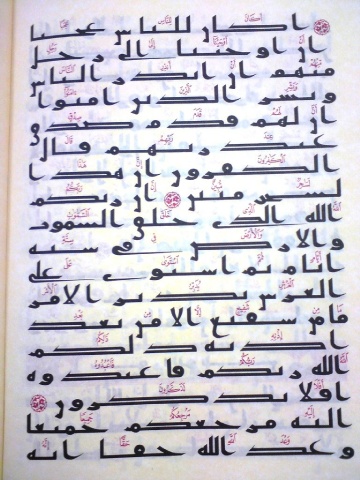 اكان للناس عجبا
ان اوحينا الى رجل
منهم ان انذر الناس
وبشر الذين امنوا
ان لهم قدم صدق
عند ربهم قال
الكفرون ان هذا
لسحر مبين ان ربكم
الله الذي خلق السموت
والارض في ستة
ايام ثم استوى على
العرش يدبر الامر
ما من شفيع الا من بعد
اذنه ذلكم
الله ربكم فاعبدوه
افلا تذكرون
اليه مرجعكم جميعا
وعد الله حقا انه